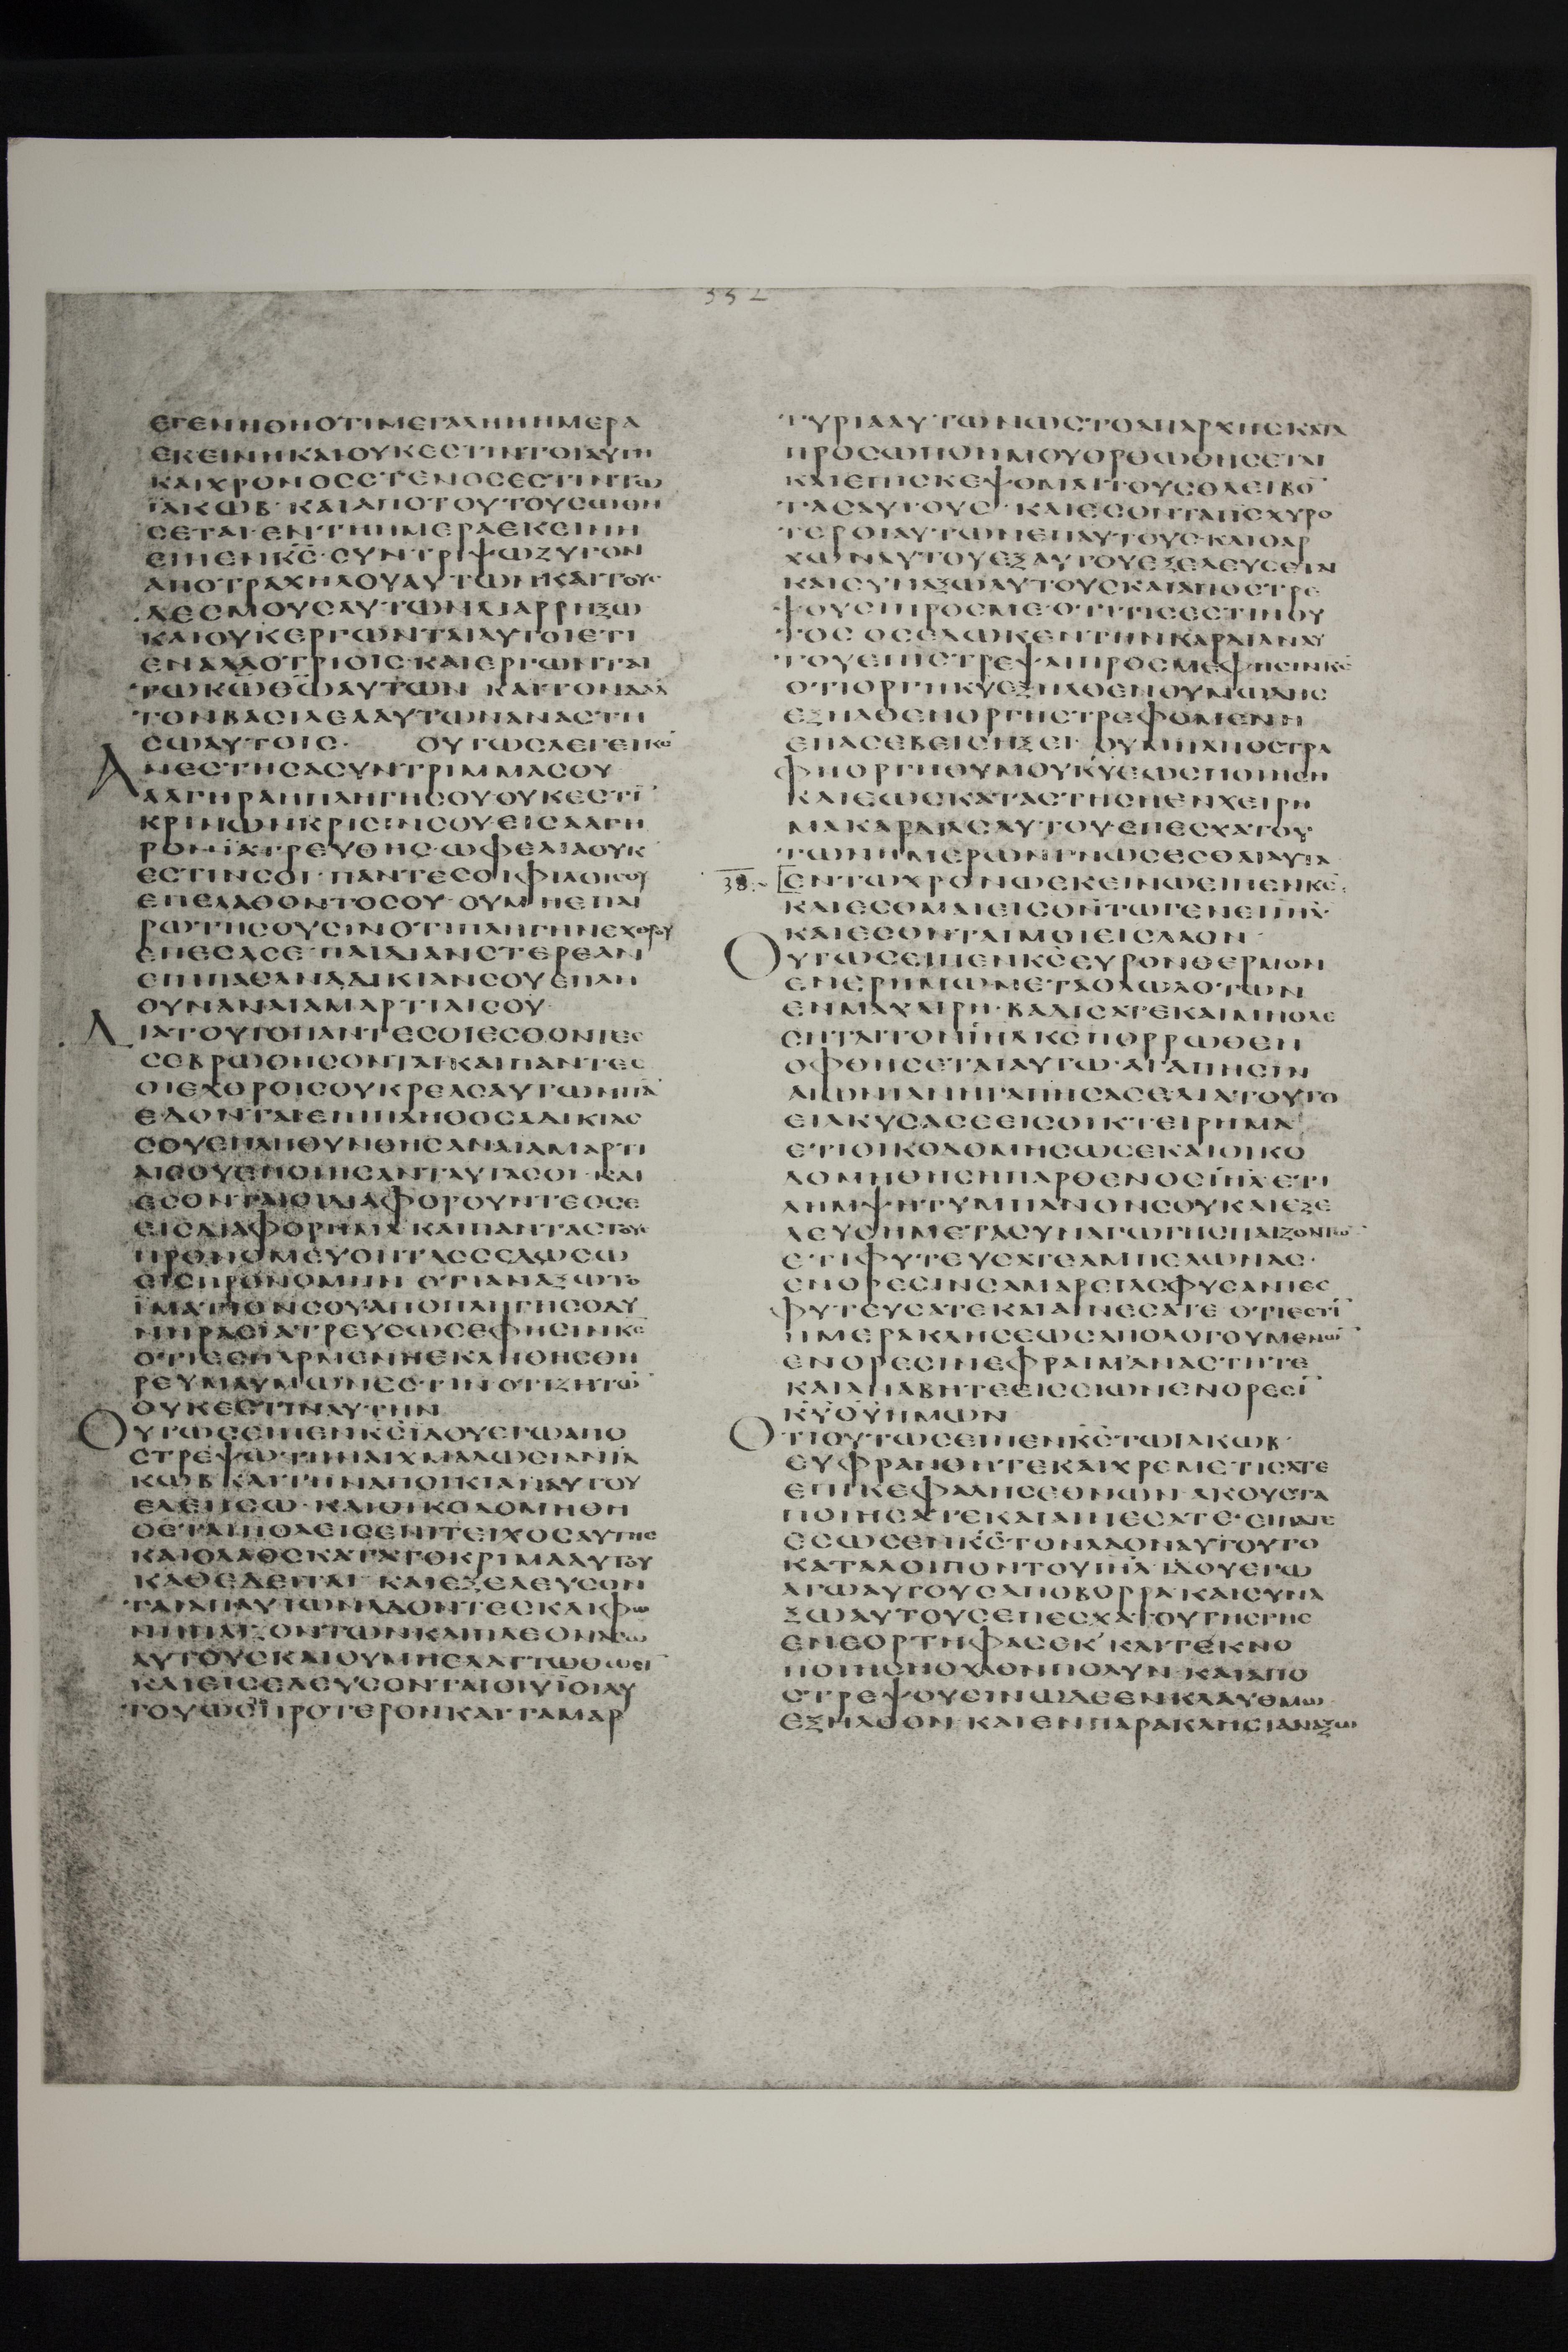 332
ΕΓΕΝΗΘΗΟΤΙΜΕΓΑΛΗΗΗΜΕΡΑ
ΕΚΕΙΝΗΚΑΙΟΥΚΕΣΤΙΝΤΟΙΑΥΤΗ
ΚΑΙΧΡΟΝΟΣΣΤΕΝΟΣΕΣΤΙΝΤΩ
ΪΑΚΩΒ· ΚΑΙΑΠΟΤΟΥΤΟΥΣΩΘΗ
ΣΕΤΑΙ· ΕΝΤΗΗΜΕΡΑΕΚΕΙΝΗ
ΕΙΠΕΝΚΣ· ΣΥΝΤΡΙΨΩΖΥΓΟΝ
ΑΠΟΤΡΑΧΗΛΟΥΑΥΤΩΝ· ΚΑΙΤΟΥΣ
ΔΕΣΜΟΥΣΑΥΤΩΝΔΙΑΡΡΗΞΩ
ΚΑΙΟΥΚΕΡΓΩΝΤΑΙΑΥΤΟΙΕΤΙ
ΕΝΑΛΛΟΤΡΙΟΙΣ· ΚΑΙΕΡΓΩΝΤΑΙ
ΤΩΚΩΘΩΑΥΤΩΝ ΚΑΙΤΟΝΔΑΔ
ΤΟΝΒΑΣΙΛΕΑΑΥΤΩΝΑΝΑΣΤΗ
ΣΩΑΥΤΟΙΣ· ΟΥΤΩΣΛΕΓΕΙΚΣ
ΑΝΕΣΤΗΣΑΣΥΝΤΡΙΜΜΑΣΟΥ
ΑΛΓΗΡΑΗΠΛΗΓΗΣΟΥΟΥΚΕΣΤΙ
ΚΡΙΝΩΝΚΡΙΣΙΝΣΟΥ· ΕΙΣΑΛΓΗ
ΡΟΝΪΑΤΡΕΥΘΗΣ· ΩΦΕΛΙΑΟΥΚ
ΕΣΤΙΝΣΟΙ· ΠΑΝΤΕΣΟΙΦΙΛΟΙΣΟΥ
ΕΠΕΛΑΘΟΝΤΟΣΟΥ· ΟΥΜΗΕΠΑΙ
ΡΩΤΗΣΟΥΣΙΝΟΤΙΠΛΗΓΗΝΕΧΘΡΟΥ
ΕΠΕΣΑΣΕ· ΠΑΙΔΙΑΝΣΤΕΡΕΑΝ
ΕΠΙΠΑΣΑΝΑΔΙΚΙΑΝΣΟΥΕΠΛΗ
ΟΥΝΑΝΑΙΑΜΑΡΤΙΑΙΣΟΥ·
ΔΙΑΤΟΥΤΟΠΑΝΤΕΣΟΙΕΣΘΟΝΤΕΣ
ΣΕΒΡΩΘΗΣΟΝΤΑΙ· ΚΑΙΠΑΝΤΕΣ
ΟΙΕΧΘΡΟΙΣΟΥΚΡΕΑΣΑΥΤΩΝΠΑ
ΕΔΟΝΤΑΙΕΠΙΠΛΗΘΟΣΑΔΙΚΙΑΣ
ΣΟΥΕΠΛΗΘΥΝΘΗΣΑΝΑΙΑΜΑΡΤΙ
ΑΙΣΟΥΕΠΟΙΗΣΑΝΤΑΥΤΑΣΟΙ· ΚΑΙ
ΕΣΟΝΤΑΙΟΙΔΙΑΦΟΡΟΥΝΤΕΣΣΕ
ΕΙΣΔΙΑΦΟΡΗΜΑ· ΚΑΙΠΑΝΤΑΣΤΟΥΣ
ΠΡΟΝΟΜΕΥΟΝΤΑΣΣΕΔΩΣΩ
ΕΙΣΠΡΟΝΟΜΗΝ ΟΤΙΑΝΑΞΩΤΟ
ΪΜΑΤΙΟΝΣΟΥΑΠΟΠΛΗΓΗΣΟΔΥ
ΝΗΡΑΣΪΑΤΡΕΥΣΩΣΕΦΗΣΙΝΚΣ
ΟΤΙΕΣΠΑΡΜΕΝΗΕΚΛΗΘΗΣΘΗ
ΡΕΥΜΑΥΜΩΝΕΣΤΙΝΟΤΙΖΗΤΩ
ΟΥΚΕΣΤΙΝΑΥΤΗΝ
ΟΥΤΩΣΕΙΠΕΝΚΣΪΔΟΥΕΓΩΑΠΟ
ΣΤΡΕΨΩΤΗΝΑΙΧΜΑΛΩΣΙΑΝΙΑ
ΚΩΒ ΚΑΙΤΗΝΑΠΟΙΚΙΑΝΑΥΤΟΥ
ΕΛΕΗΣΩ· ΚΑΙΟΙΚΟΔΟΜΗΘΗ
ΣΕΤΑΙΠΟΛΕΙΣΕΝΙΤΕΙΧΟΣΑΥΤΗΣ
ΚΑΙΟΛΑΟΣΚΑΤΑΤΟΚΡΙΜΑΑΥΤΟΥ
ΚΑΘΕΔΕΙΤΑΙ· ΚΑΙΕΞΕΛΕΥΣΟΝ
ΤΑΙΑΠΑΥΤΩΝΑΔΟΝΤΕΣΚΑΙΦΩ
ΝΗΠΑΙΖΟΝΤΩΝΚΑΙΠΛΕΟΝΑΣΩ
ΑΥΤΟΥΣΚΑΙΟΥΜΗΕΛΑΤΤΩΘΩΣΙ
ΚΑΙΕΙΣΕΛΕΥΣΟΝΤΑΙΟΙΥΪΟΙΑΥ
ΤΟΥΩΣΤΙΠΡΟΤΕΡΟΝΚΑΙΤΑΜΑΡ
ΤΥΡΙΑΑΥΤΩΝΩΣΤΟΑΠΑΡΧΗΣΚΑΤΑ
ΠΡΟΣΩΠΟΝΜΟΥΟΡΘΩΘΗΣΕΤΑΙ
ΚΑΙΕΠΙΣΚΕΨΟΜΑΙΤΟΥΣΘΛΕΙΒΟ
ΤΑΣΑΥΤΟΥΣ· ΚΑΙΕΣΟΝΤΑΙΪΣΧΥΡΟ
ΤΕΡΟΙΑΥΤΩΝΕΠΑΥΤΟΥΣ· ΚΑΙΟΑΡ
ΧΩΝΑΥΤΟΥΕΞΑΥΤΟΥΕΞΕΛΕΥΣΕΙΝ
ΚΑΙΣΥΝΑΞΩΑΥΤΟΥΣΚΑΙΑΠΟΣΤΡΕ
ΨΟΥΣΙΠΡΟΣΜΕ· ΟΤΙΤΙΣΕΣΤΙΝΟΥ
ΤΟΣ ΟΣΕΔΩΚΕΝΤΗΝΚΑΡΔΙΑΝΑΥ
ΤΟΥΕΠΙΣΤΡΕΨΑΙΠΡΟΣΜΕΦΗΣΙΝΚΣ
ΟΤΙΟΡΓΗΚΥΕΞΗΛΘΕΝΘΥΜΩΔΗΣ
ΕΞΗΛΘΕΝΟΡΓΗΣΤΡΕΦΟΜΕΝΗ
ΕΠΑΣΕΒΕΙΣΗΞΕΙ· ΟΥΜΗΑΠΟΣΤΡΑ
ΦΗΟΡΓΗΘΥΜΟΥΚΥΕΩΣΠΟΙΗΣΗ
ΚΑΙΕΩΣΚΑΤΑΣΤΗΣΗΕΝΧΕΙΡΗ
ΜΑΚΑΡΔΙΑΣΑΥΤΟΥ· ΕΠΕΣΧΑΤΟΥ
ΤΩΝΗΜΕΡΩΝΓΝΩΣΕΣΘΑΙΑΥΤΑ
38:~ ΕΝΤΩΧΡΟΝΩΕΚΕΙΝΩΕΙΠΕΝΚΣ·
ΚΑΙΕΣΟΜΑΙΕΙΣΘΝΤΩΓΕΝΕΙΙΗΛ·
ΚΑΙΕΣΟΝΤΑΙΜΟΙΕΙΣΛΑΟΝ·
ΟΥΤΩΣΕΙΠΕΝΚΣΕΥΡΟΝΘΕΡΜΟΝ
ΕΝΕΡΗΜΩΜΕΤΑΟΛΩΛΟΤΩΝ
ΕΝΜΑΧΑΙΡΗ· ΒΑΔΙΣΑΤΕΚΑΙΜΗΟΛΕ
ΣΗΤΑΙΤΟΝΙΗΛΚΣΠΟΡΡΩΘΕΝ
ΟΦΘΗΣΕΤΑΙΑΥΤΩ· ΑΓΑΠΗΣΙΝ
ΑΙΩΝΙΑΝΗΓΑΠΗΣΑΣΕΔΙΑΤΟΥΤΟ
ΕΙΛΚΥΣΑΣΣΕΙΣΟΙΚΤΕΙΡΗΜΑ
ΕΤΙΟΙΚΟΔΟΜΗΣΩΣΕΚΑΙΟΙΚΟ
ΔΟΜΗΘΗΣΗΠΑΡΘΕΝΟΣΙΗΛ· ΕΤΙ
ΛΗΜΨΗΤΥΜΠΑΝΟΝΣΟΥΚΑΙΕΞΕ
ΛΕΥΣΗΜΕΤΑΣΥΝΑΓΩΓΗΣΠΑΙΖΟΝΤΩ
ΕΤΙΦΥΤΕΥΣΑΤΕΑΜΠΕΛΩΝΑΣ·
ΕΝΟΡΕΣΙΝΣΑΜΑΡΕΙΑΣΦΥΣΑΝΤΕΣ
ΦΥΤΕΥΣΑΤΕΚΑΙΑΙΝΕΣΑΤΕ ΟΤΙΕΣΤΙ
ΗΜΕΡΑΚΛΗΣΕΩΣΑΠΟΛΟΓΟΥΜΕΝΩ
ΕΝΟΡΕΣΙΝΕΦΡΑΙΜ· ΑΝΑΣΤΗΤΕ
ΚΑΙΑΝΑΒΗΤΕΕΙΣΣΙΩΝΕΝΟΡΕΣΙ
ΚΥΘΥΗΜΩΝ
ΟΤΙΟΥΤΩΣΕΙΠΕΝΚΣΤΩΙΑΚΩΒ·
ΕΥΦΡΑΝΘΗΤΕΚΑΙΧΡΕΜΕΤΙΣΑΤΕ
ΕΠΙΚΕΦΑΛΗΣΕΘΝΩΝ· ΑΚΟΥΣΤΑ
ΠΟΙΗΣΑΤΕΚΑΙΑΙΝΕΣΑΤΕ· ΕΙΠΑΤΕ
ΕΣΩΣΕΝΚΣΤΟΝΛΑΟΝΑΥΤΟΥΤΟ
ΚΑΤΑΛΟΙΠΟΝΤΟΥΙΗΛ ΙΔΟΥΕΓΩ
ΑΓΩΑΥΤΟΥΣΑΠΟΒΟΡΡΑ· ΚΑΙΣΥΝΑ
ΞΩΑΥΤΟΥΣΕΠΕΣΧΑΤΟΥΤΗΣΓΗΣ
ΕΝΕΟΡΤΗΦΑΣΕΚ’ ΚΑΙΤΕΚΝΟ
ΠΟΙΗΣΗΟΧΛΟΝΠΟΛΥΝ· ΚΑΙΑΠΟ
ΣΤΡΕΨΟΥΣΙΝΩΔΕΕΝΚΛΑΥΘΜΩ
ΕΞΗΛΘΟΝ· ΚΑΙΕΝΠΑΡΑΚΛΗΣΙΑΝΑΞΩ